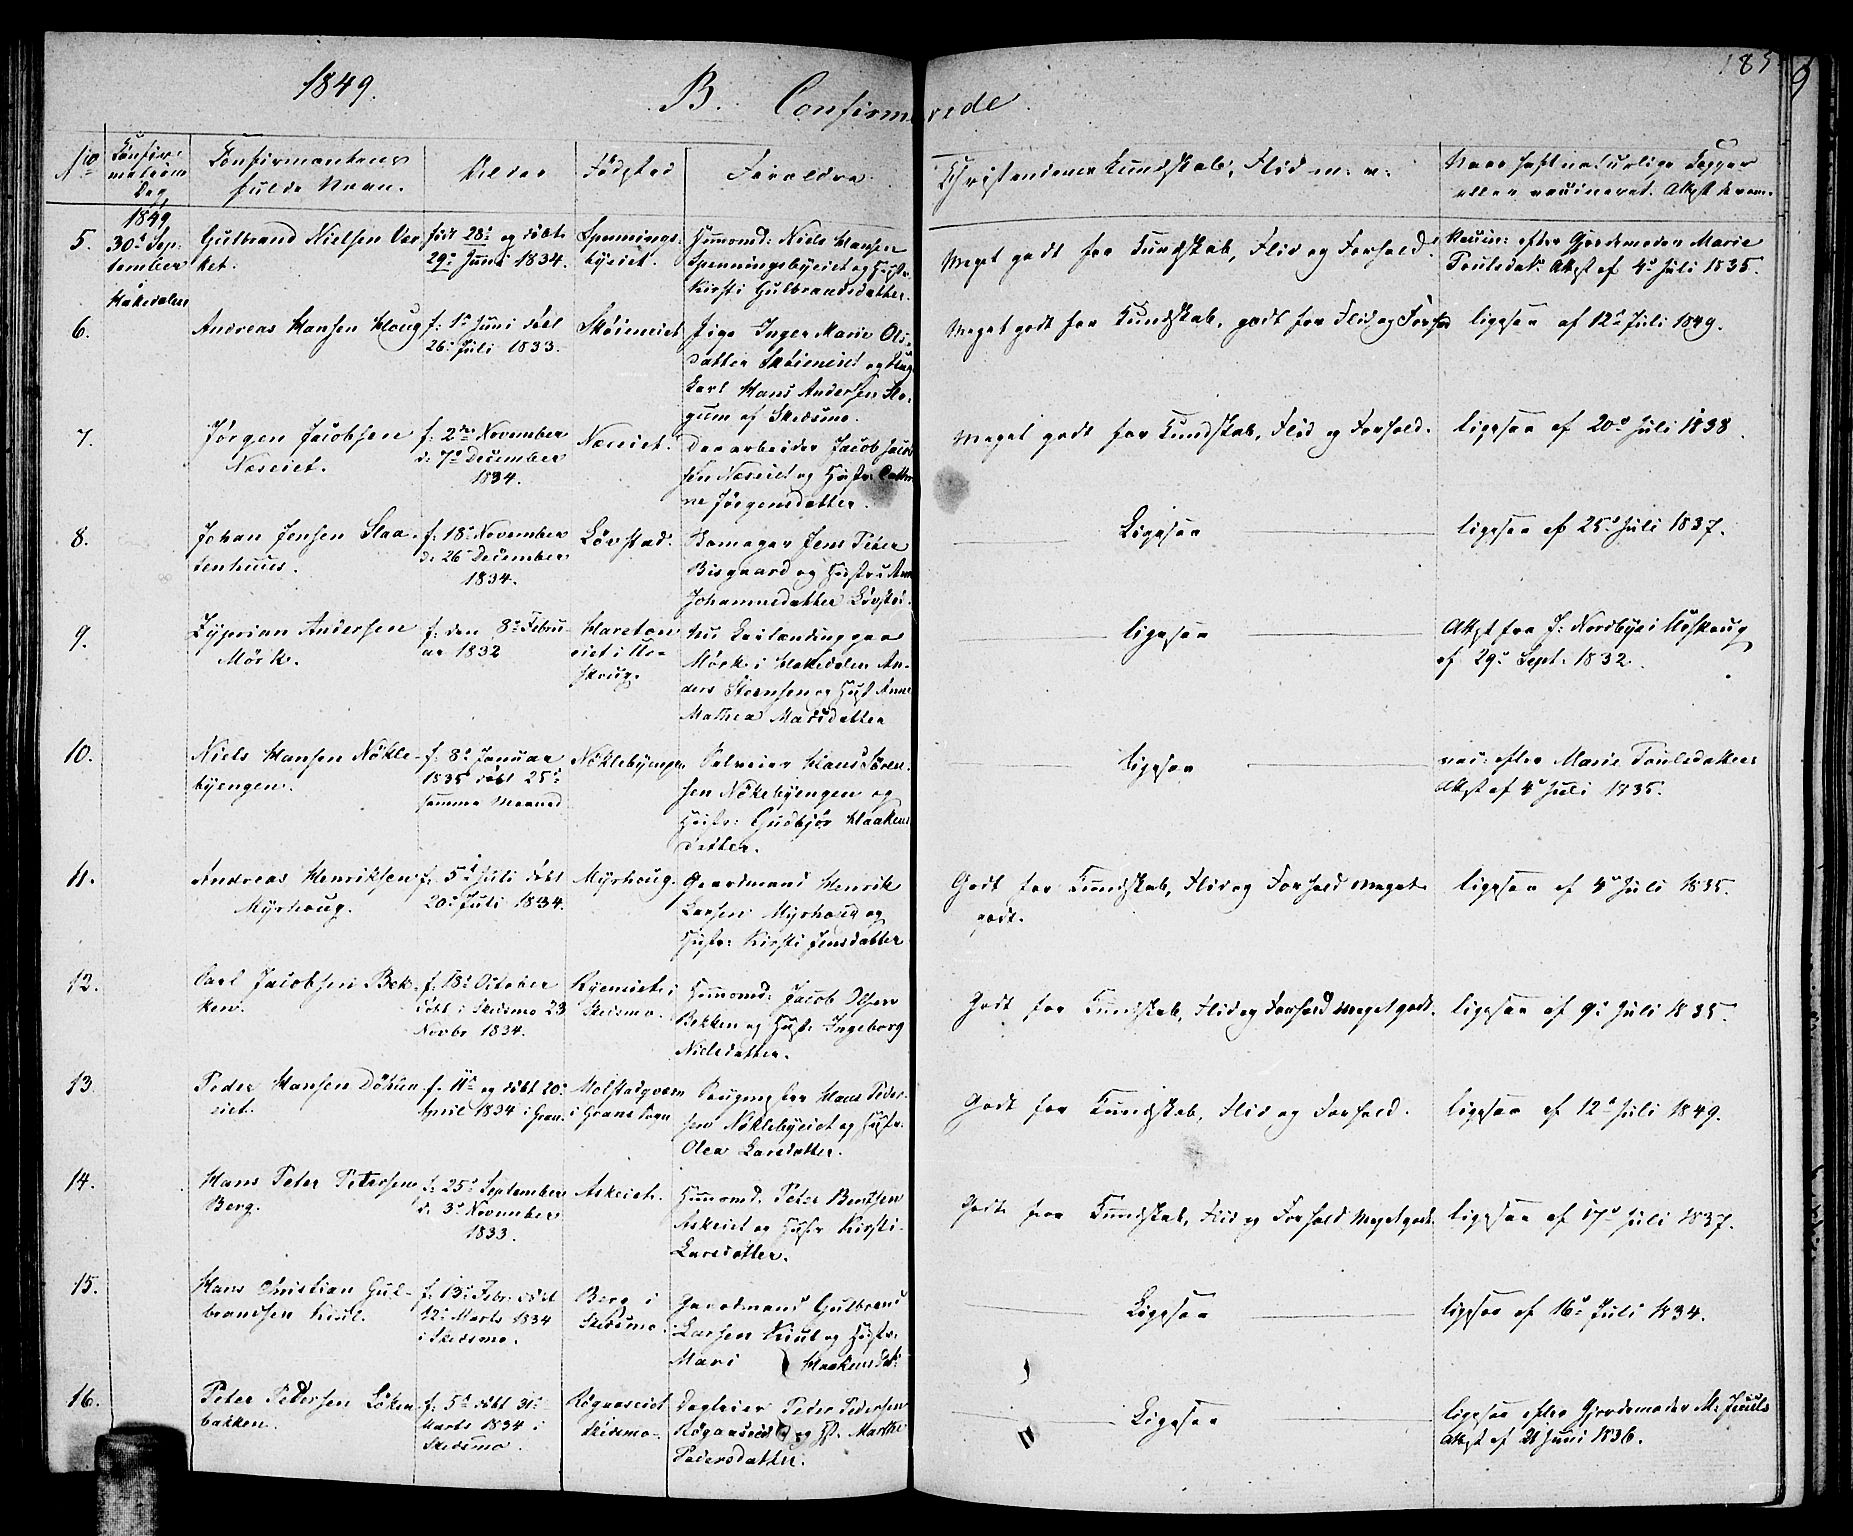 1849.
B. Confirmerede.
185
No
Confirmations Dag,
Confirmantens fulde Navn.
Alder
Födsted
Forældre.
Christendoms Kundskab, Flid m. v:
Naar haft naturlige Kopper
eller vaccineret. Attest derom.
5.
1849
30te September
i
Hakedalen
Gulbrand Nielsen Verket.
född 28de og döbt
29de Juni 1834.
Spenningsbyeiet.
Huusmd: Niels Hansen
Spenningsbyeiet og Hustr.
Kirsti Gulbrandsdatter.
Meget godt for Kundskab, Flid og Forhold.
Vaccin: efter Gjordemoder Marie
Poulsdatt: Attest af 4de Juli 1835.
6.
Andreas Hansen Houg
f: 1ste Juni döbt
26de Juli 1833.
Sköieneiet
Pige Inger Marie Olsdatter
Sköieneiet og Ung
Karl Hans Andersen
af Skedsmo.
Meget godt for Kundskab, godt for Flid og Forhold
ligesaa af 12te Juli 1849.
7.
Jörgen Jacobsen
Næseiet.
f: 2den November
d: 7de December
1834.
Næseiet.
Dagarbeider Jacob Jacobsen
Næseiet og Hustr.
Jörgensdatter.
Meget godt for Kundskab, Flid og Forhold.
ligesaa af 20de Juli 1838
8.
Johan Jensen Slaatenhuus.
f: 18de November
d: 26de December
1834.
Lövstad.
Jens Peter
Bisgaard og Hustru Anne
Johannesdatter Lövstad.
Ligesaa
ligesaa af 25de Juli 1837.
9.
Zyprian Andersen
Mörk.
f: den 8de Februar
1832
Harstoneiet
i Urskoug.
Nu Leilænding paa
Mörk i Hakedalen Anders
Steensen og Hust. Anne
Mathea Marisdatter
ligesaa
Attest fra P: Nordbye i Urskoug
af 29de Sept: 1832.
10.
Niels Hansen Nökle-
byengen.
f: 8de Januar
1835 döbt 25de
samme Maaned
Nöklebyengen.
Selveier Hans Sörensen
Nöklebyengen og
Hustr: Gudbjör Haakensdatter.
ligesaa
vac: efter Marie Poulsdatters
Attest af 4de Juli 1835.
11.
Andreas Henriksen
Myrhoug.
f. 5te Juli döbt
20de Juli 1834.
Myrhoug.
Gaardmand Henrik
Larsen Myrhoug og
Hustr: Kirsti Jensdatter
Godt for Kundskab, Flid og Forhold meget
godt.
ligesaa af 4de Juli 1835.
12.
Carl Jacobsen Bekken.
f: 18de October
döbt i Skedsmo 23
Novbr 1834.
Ryeneiet i
Skedsmo.
Huusmd: Jacob Olsen
Bekken og Hustr: Ingeborg
Nielsdatter.
Godt for Kundskab, Flid og Forhold meget godt.
ligesaa af 9de Juli 1835.
13.
Peder Hansen Döhleneiet.
f. 11te og döbt 20de
April 1834 i Gran.
Molstadqvern
i Grans Sogn
Hans Pedersen
Nöklebyeiet og Hustr.
Olea Larsdatter.
Godt for Kundskab, Flid og Forhold.
ligesaa af 12te Juli 1849.
14.
Hans Peter Petersen
Berg.
f. 25de September
d: 3de November
1833.
Askeiet.
Huusmd. Peter Bentsen
Askeiet og Hustr Kirsti
Larsdatter.
Godt for Kundskab, Flid og Forhold meget godt
ligesaa af 17de Juli 1837.
15.
Hans Christian Gulbrandsen
Kiul.
f. 13de Febr: döbt
12te Marts 1834
i Skedsmo.
Berg i
Skedsmo.
Gaardmand Gulbrand
Larsen Kiul og Hustr.
Mari Haakensdatt:
Ligesaa
ligesaa af 16de Juli 1834.
16.
Peter Pedersen Lökenbakken.
f: 5te döbt 31te
Marts 1834 i
Skedsmo.
Rögaaseiet
Skedsmo.
Dagleier Peder Pedersen
Rögaaseiet og H. Marthe
Pedersdatter.
Ligesaa
ligesaa efter Gjordemoder M. Juuls
Attest af 26 Juni 1836.